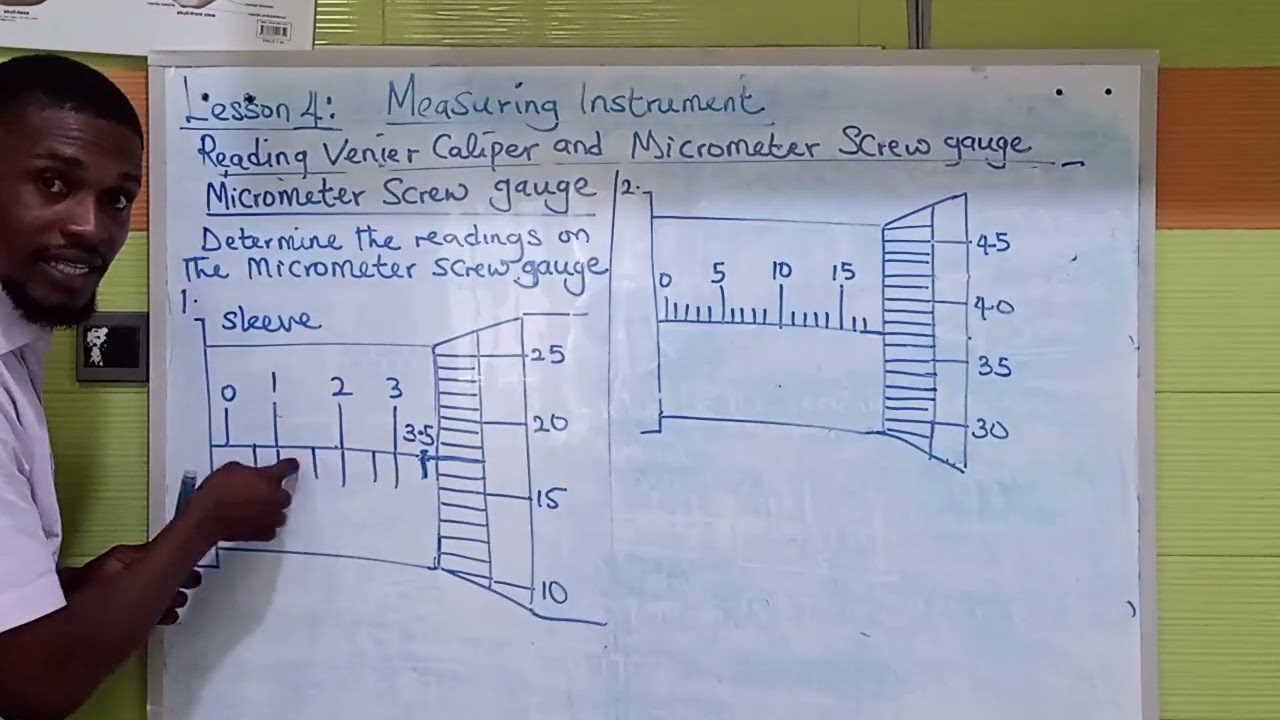 Lesson 4: Measuring Instrument
Reading Venier Caliper and Micrometer Screw gauge
Micrometer Screw gauge
Determine the readings on
The Micrometer screw gauge
1.
sleeve
0 1 2 3
3.5
25
20
15
10
2.
0 5 10 15
45
40
35
30